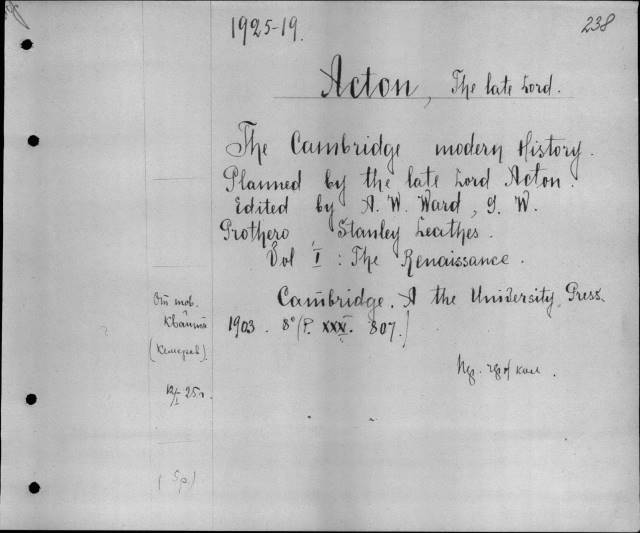 1925-19.
238
Acton, The late Lord.
The Cambridge modern History.
Planned by the late Lord Acton.
Edited by A. W. Ward, G. W.
Prothero, Stanley Leathes.
Vol I : The Renaissance.
Cambridge. A the University Press.
1903. 8° (P. XXXI. 807.)
От тов.
12/I 25 г.
(5 р.)